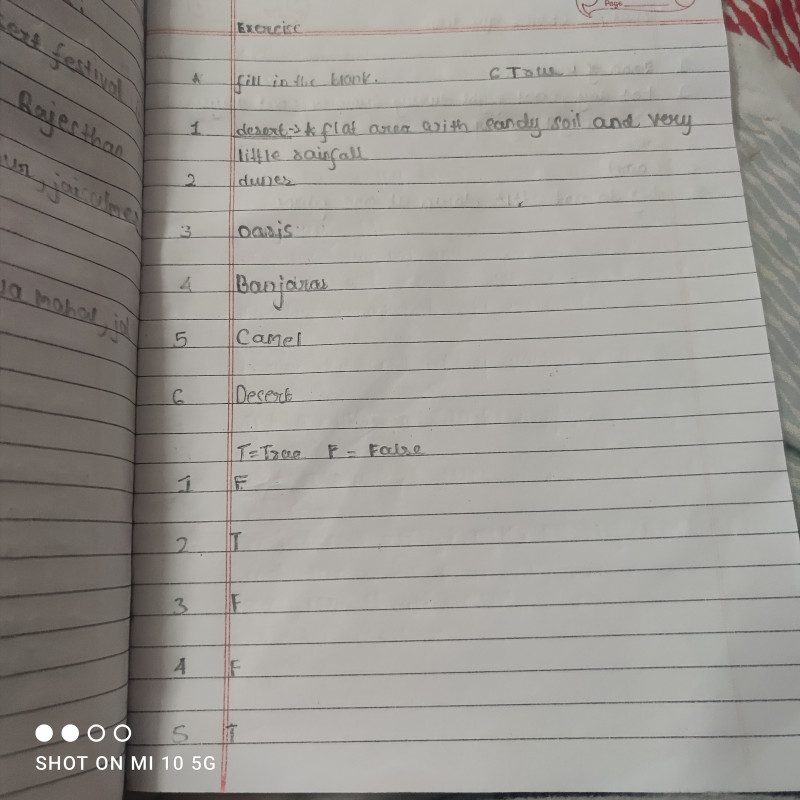 Page
sert festival
Rajecthan
jaisalmes
mahal, jal
Exercise
A fill in the blank. C True
1 desert → A flat area with sandy soil and very
little rainfall
2 dunes
3 oasis
4 Banjaras
5 Camel
6 Desert
T=True F = False
1 F
2 T
3 F
4 F
5 T
SHOT ON MI 10 5G